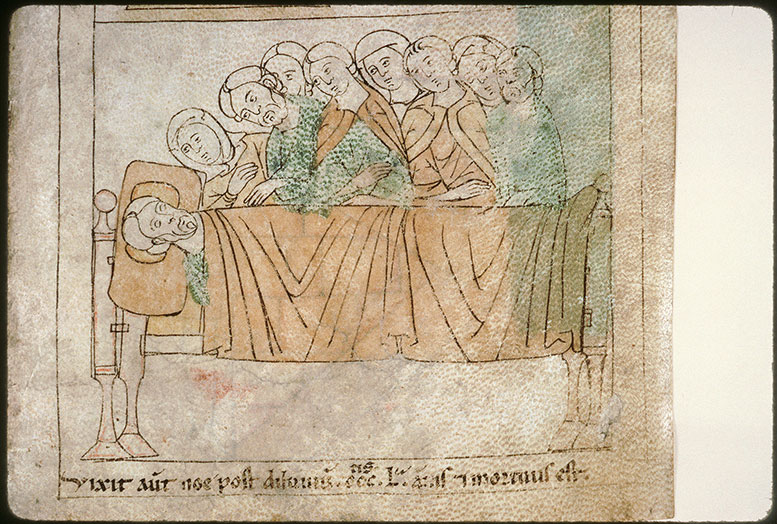 Vixit aut̄ noe post diluuiū. ccc. L.ᵃ ⁊ mortuus est.